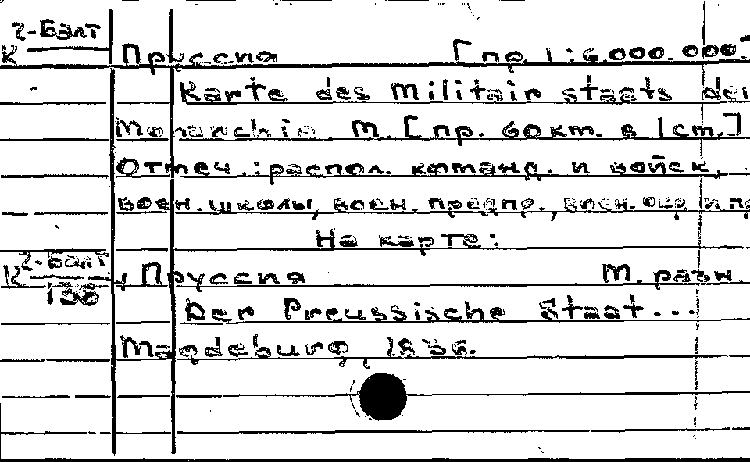 2-Балт
К Пруссия [пр. 1:6.000.000.]
Karte des Militair staats der
Monarchie М. [пр. 60км. в 1см.]
Отмеч.: распол. команд. и войск,
воен. школы, воен. предпр., воен. окр и
На карте:
К 2-Балт Пруссия М. разн.
138
Der Preussische Staat...
Magdeburg, 1836.